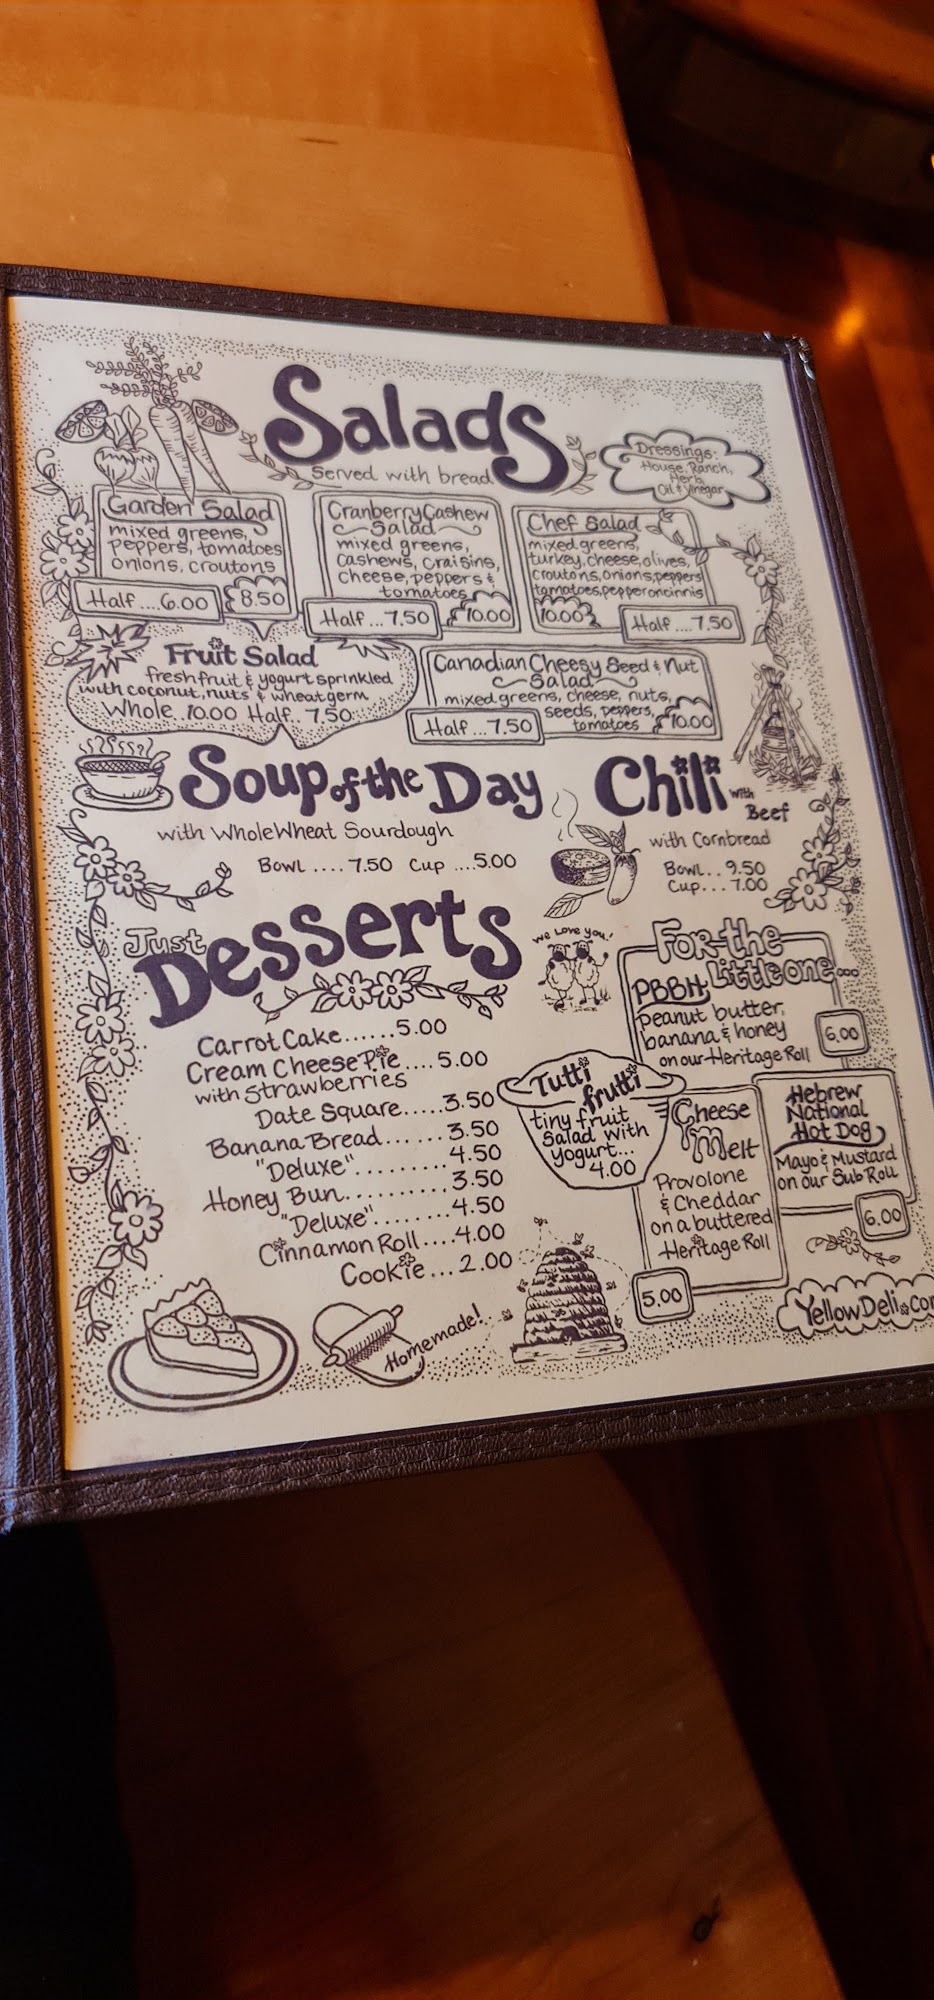 Salads
Served with bread
Dressings:
House, Ranch,
Herb,
Oil & Vinegar
Garden Salad
mixed greens,
peppers, tomatoes
onions, croutons
Half....6.00
8.50
Cranberry Cashew
Salad
mixed greens,
cashews, craisins,
cheese, peppers &
tomatoes
Half...7.50
10.00
Chef Salad
mixed greens,
turkey, cheese, olives,
croutons, onions, peppers
tomatoes, pepperoncinnis
10.00
Half....7.50
Fruit Salad
fresh fruit & yogurt sprinkled
with coconut, nuts & wheat germ
Whole..10.00 Half..7.50
Canadian Cheesy Seed & Nut
Salad
mixed greens, cheese, nuts,
seeds, peppers,
tomatoes
Half...7.50
10.00
Soup of the Day
with Whole Wheat Sourdough
Bowl ....7.50 Cup ....5.00
Chili with
Beef
with Cornbread
Bowl..9.50
Cup...7.00
Just
Desserts
Carrot Cake......5.00
Cream Cheese Pie....5.00
with Strawberries
Date Square.....3.50
Banana Bread......3.50
"Deluxe".........4.50
Honey Bun..........3.50
"Deluxe"........4.50
Cinnamon Roll....4.00
Cookie...2.00
Homemade!
We Love You!
For the
Little one...
PBBH
peanut butter,
banana & honey
on our Heritage Roll
6.00
Tutti
frutti
tiny fruit
salad with
yogurt...
4.00
Cheese
Melt
Provolone
& Cheddar
on a buttered
Heritage Roll
5.00
Hebrew
National
Hot Dog
Mayo & Mustard
on our Sub Roll
6.00
YellowDeli.com